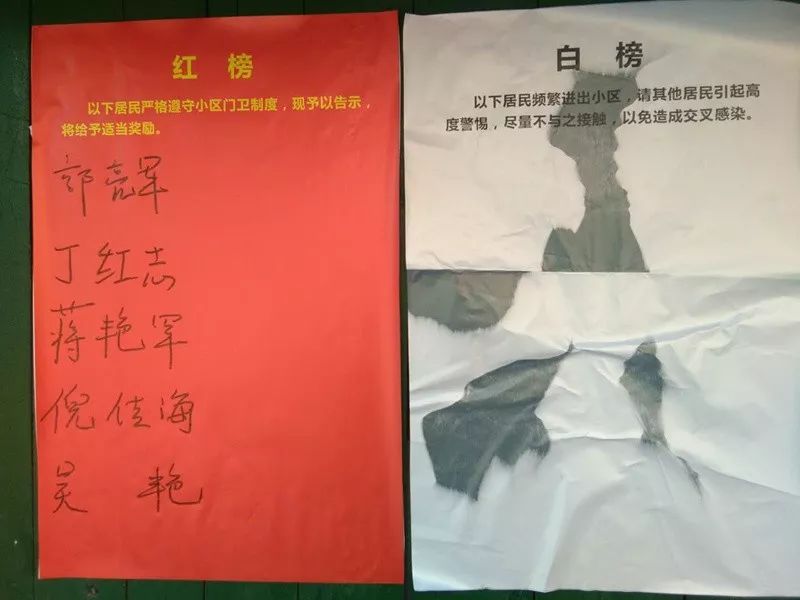 红 榜
以下居民严格遵守小区门卫制度，现予以告示，
将给予适当奖励。
郭亮军
丁红志
蒋艳军
倪佳海
吴 艳
白 榜
以下居民频繁进出小区，请其他居民引起高
度警惕，尽量不与之接触，以免造成交叉感染。